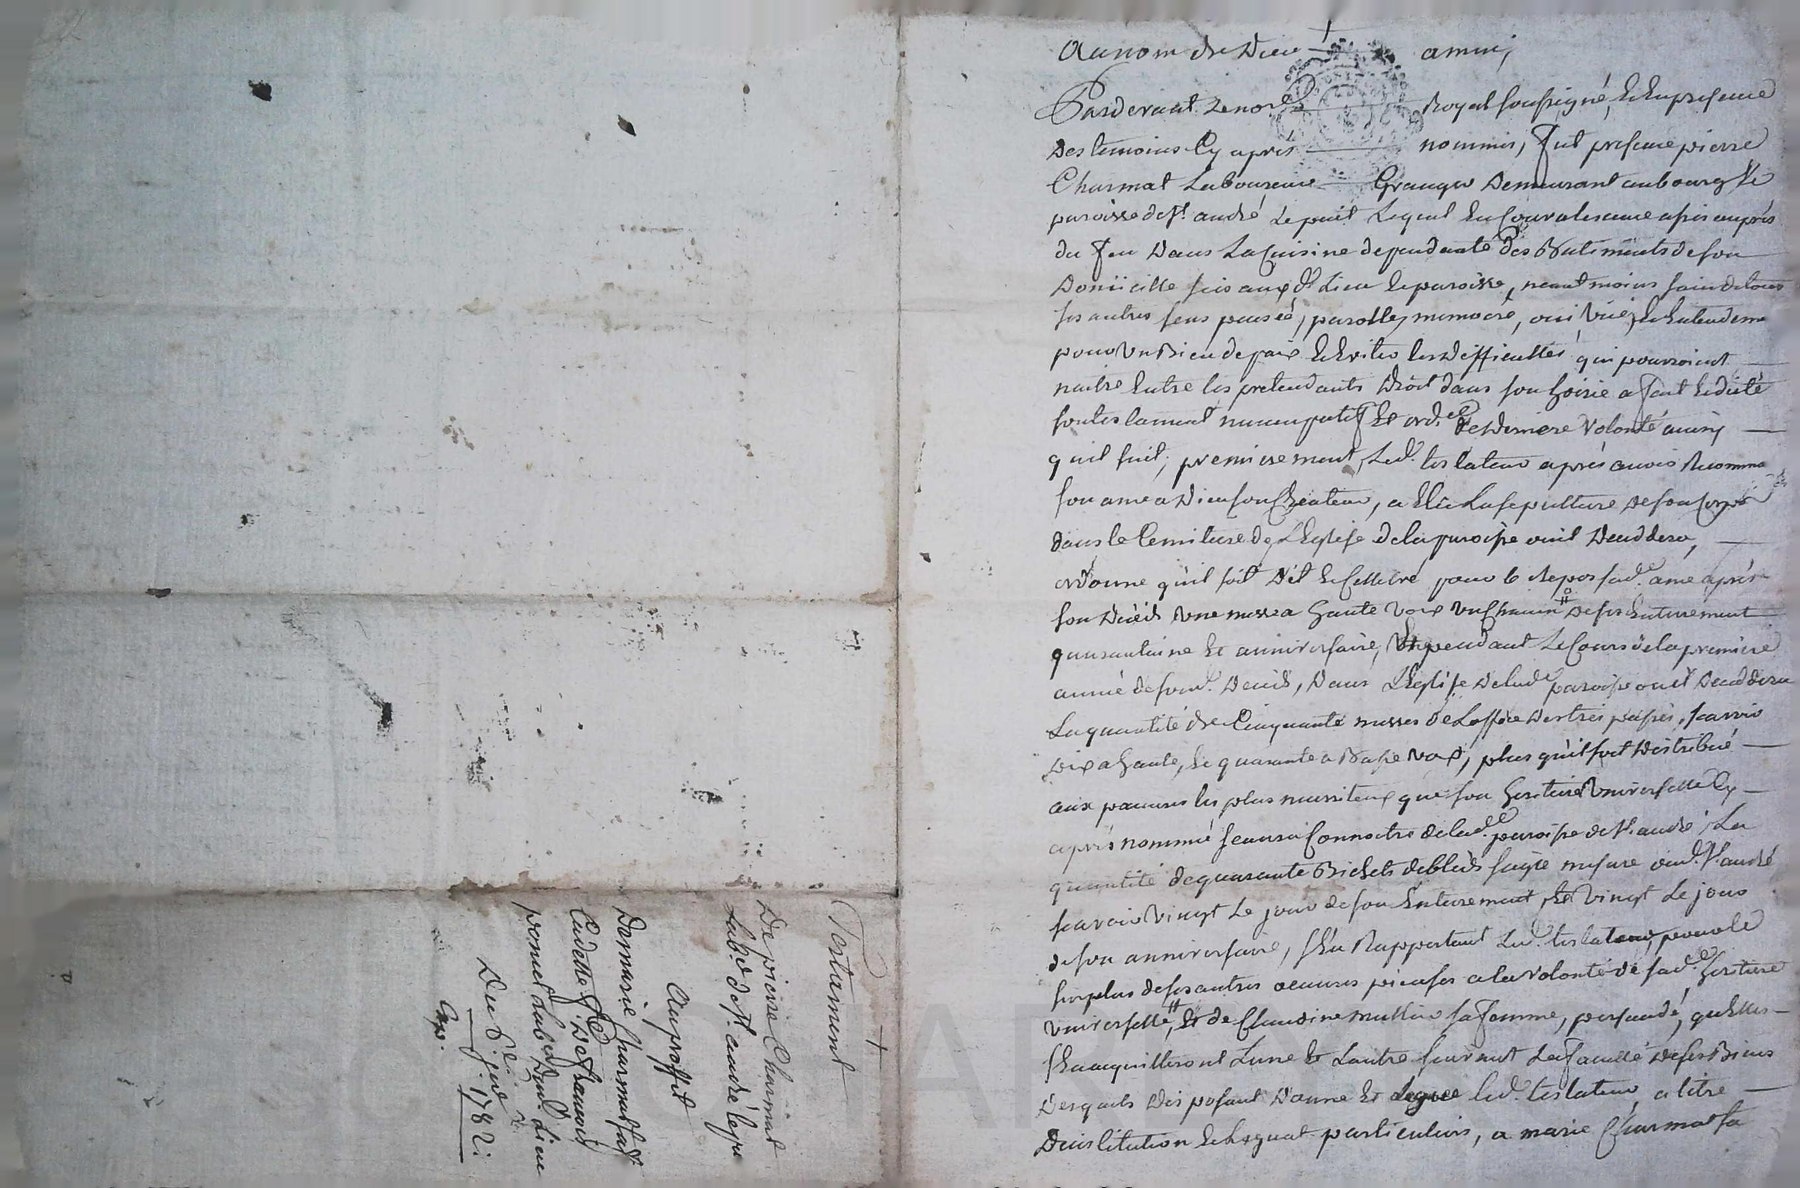 Au nom de Dieu amen;
Pardevant le no.re Royal soussigné, et en presence
Des temoins cy après nommés, fut present pierre
Charmat Laboureur Granger Demeurant au bourg et
paroisse de St. andré le puit Lequel en Convalescence assis auprès
du feu Dans La Cuisine dependante des Batiments de son
Domicille scis aux d. Lieu et paroisse, neantmoins sain de tous
ses autres sens pensée, parolle, memoire, oui, vüe, et Entendem
pour un Bien de paix et Eviter les Difficultés qui pourroient
naitre Entre les pretendants Droit dans son hoirie a fait et dicté
son testament nuncupatif et ord.re de derniere volonté ainsy
qu'il suit, premierement, Led. testateur après avoir Recomma
son ame a Dieu son Createur, a Elû La sepulture De son Corps
dans le Cemitiere de L'Eglise de la paroisse ou il Deceddera,
ordonne qu'il soit Dit et Cellebré pour le Repos sad. ame après
son Décéds une messe a haute voix un Chacun # De ses Enterrement
quarantaine Et anniversaire, Et pendant Le Cours de la premiere
année de son d. Décéds, Dans L'Eglise De lad. paroisse ou il Deceddera
La quantité de Cinquante messes de L'office des trépassés, savoir
Dix a haute, et quarante a Basse voix, plus qu'il soit Distribué
aux pauvres les plus necessiteux que son heritiere universelle Cy
après nommé scaura Connoitre de lad. paroisse de St. andré, La
quantité de quarante Bichets de bleds seigle mesure dud. St. andré
scavoir vingt Le jour de son Enterrement, Et vingt Le jour
de son anniversaire, s'En Rapportant Led. testateur, pour le
surplus de ses autres oeuvres pieuses a la volonté de sad. heritiere
universelle, # Et de Claudine mullier sa femme, persuadé, qu'elles
s'En acquitteront L'une Et L'autre suivant La faculté de ses Biens
Desquels Disposant Donne Et Legue led. testateur, a titre
D'institution et Legual particuliers, a marie Charmat sa
Testament
De pierre Charmat
Lab.r de St. andré le pu
Au proffit
De marie Charmat sa f
Cadette
Du 6.e 1782
Exp.